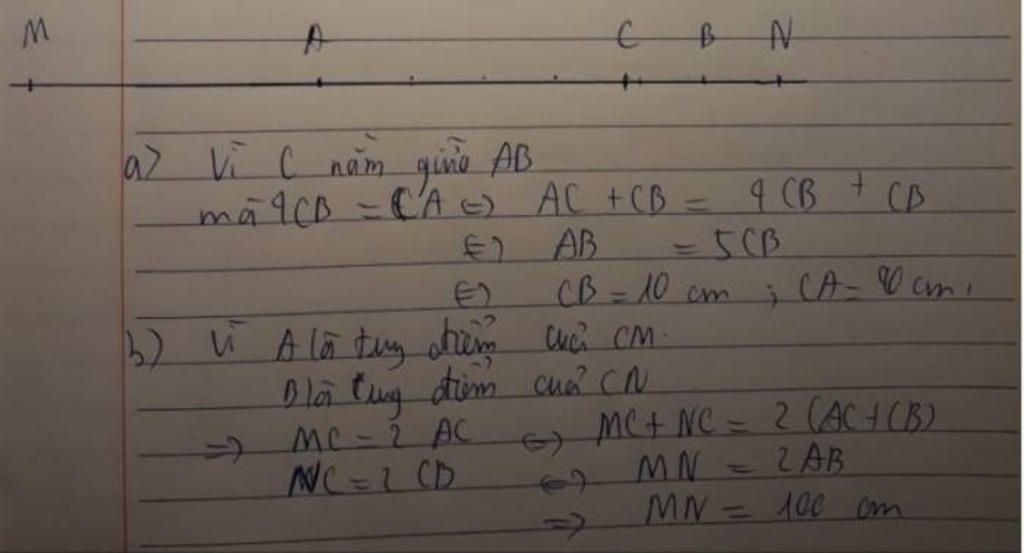 M A C B N
a) Vì C nằm giữa AB
mà 4CB = CA ⇔ AC + CB = 4CB + CB
⇔ AB = 5CB
⇔ CB = 10 cm ; CA = 40 cm.
b) Vì A là trung điểm của CM.
B là trung điểm của CN
⇒ MC = 2 AC ⇔ MC + NC = 2 (AC + CB)
NC = 2 CB ⇔ MN = 2AB
⇒ MN = 100 cm